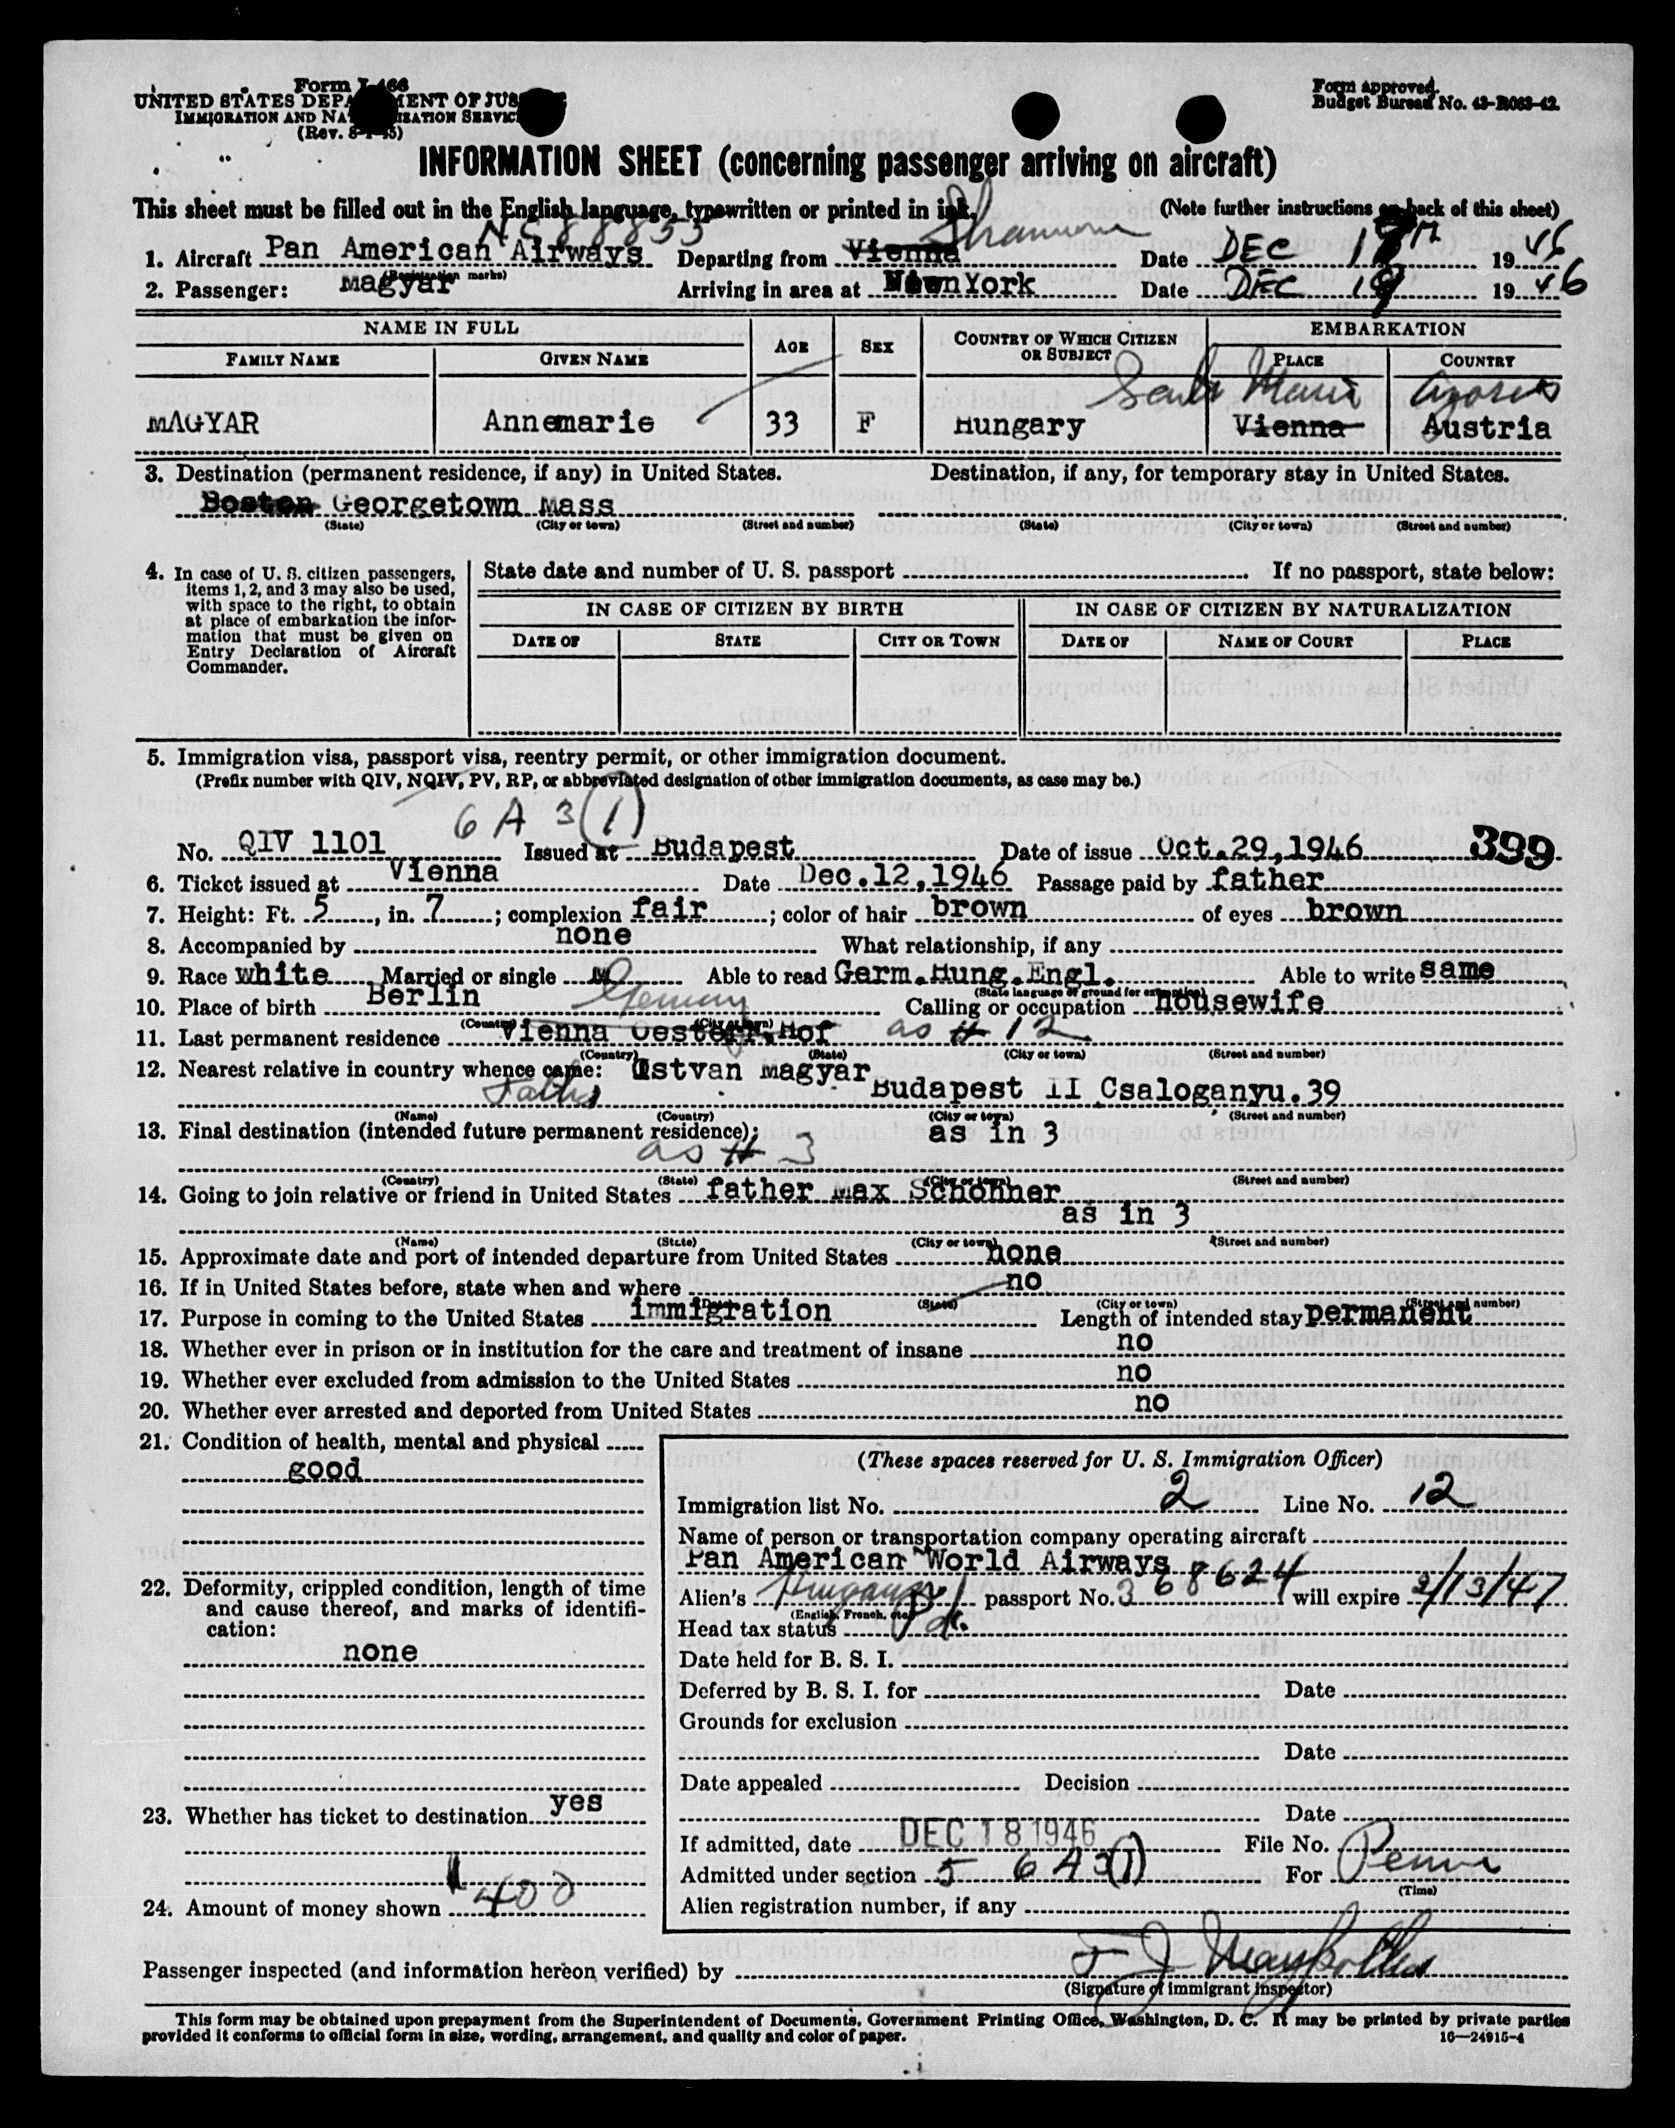 Form I-466
UNITED STATES DEPARTMENT OF JUSTICE
IMMIGRATION AND NATURALIZATION SERVICE
(Rev. 8-1-45)
Form approved.
Budget Bureau No. 43-R063-42.
INFORMATION SHEET (concerning passenger arriving on aircraft)
This sheet must be filled out in the English language, typewritten or printed in ink. (Note further instructions on back of this sheet)
NC88833 Shannon
1. Aircraft Pan American Airways Departing from Vienna Date DEC 19 46
(Registration marks)
2. Passenger: Magyar Arriving in area at New York Date DEC 18 19 46
NAME IN FULL AGE SEX COUNTRY OF WHICH CITIZEN OR SUBJECT EMBARKATION
FAMILY NAME GIVEN NAME PLACE COUNTRY
Santa Maria Azores
MAGYAR Annemarie 33 F Hungary Vienna Austria
3. Destination (permanent residence, if any) in United States. Destination, if any, for temporary stay in United States.
Boston Georgetown Mass
(State) (City or town) (Street and number) (State) (City or town) (Street and number)
4. In case of U. S. citizen passengers, items 1, 2, and 3 may also be used, with space to the right, to obtain at place of embarkation the information that must be given on Entry Declaration of Aircraft Commander.
State date and number of U. S. passport If no passport, state below:
IN CASE OF CITIZEN BY BIRTH IN CASE OF CITIZEN BY NATURALIZATION
DATE OF STATE CITY OR TOWN DATE OF NAME OF COURT PLACE
5. Immigration visa, passport visa, reentry permit, or other immigration document.
(Prefix number with QIV, NQIV, PV, RP, or abbreviated designation of other immigration documents, as case may be.)
6 A 3 (1)
No. QIV 1101 Issued at Budapest Date of issue Oct.29,1946 399
6. Ticket issued at Vienna Date Dec.12,1946 Passage paid by father
7. Height: Ft. 5, in. 7; complexion fair; color of hair brown of eyes brown
8. Accompanied by none What relationship, if any
9. Race white Married or single Able to read Germ.Hung.Engl. Able to write same
(State language or ground for exemption)
10. Place of birth Berlin Germany Calling or occupation housewife
(Country) (City or town)
11. Last permanent residence Vienna Oesterr.Hof as # 12
(Country) (State) (City or town) (Street and number)
12. Nearest relative in country whence came: Istvan Magyar
Father Budapest II Csaloganyu.39
(Name) (Country) (City or town) (Street and number)
13. Final destination (intended future permanent residence): as in 3
as # 3
(Country) (State) (City or town) (Street and number)
14. Going to join relative or friend in United States father Max Schohner
as in 3
(Name) (State) (City or town) (Street and number)
15. Approximate date and port of intended departure from United States none
16. If in United States before, state when and where no
(Date) (State) (City or town) (Street and number)
17. Purpose in coming to the United States immigration Length of intended stay permanent
18. Whether ever in prison or in institution for the care and treatment of insane no
19. Whether ever excluded from admission to the United States no
20. Whether ever arrested and deported from United States no
21. Condition of health, mental and physical
good
22. Deformity, crippled condition, length of time and cause thereof, and marks of identification:
none
23. Whether has ticket to destination yes
24. Amount of money shown 400
(These spaces reserved for U. S. Immigration Officer)
Immigration list No. 2 Line No. 12
Name of person or transportation company operating aircraft
Pan American World Airways
Alien's Hungarian passport No. 368624 will expire 2/13/47
(English, French, etc.)
Head tax status Pd.
Date held for B. S. I.
Deferred by B. S. I. for Date
Grounds for exclusion
Date
Date appealed Decision
Date
If admitted, date DEC 18 1946 File No.
Admitted under section 5 6A3(1) For Perm
(Time)
Alien registration number, if any
Passenger inspected (and information hereon verified) by
(Signature of immigrant inspector)
This form may be obtained upon prepayment from the Superintendent of Documents, Government Printing Office, Washington, D. C. It may be printed by private parties
provided it conforms to official form in size, wording, arrangement, and quality and color of paper. 16—24915-4